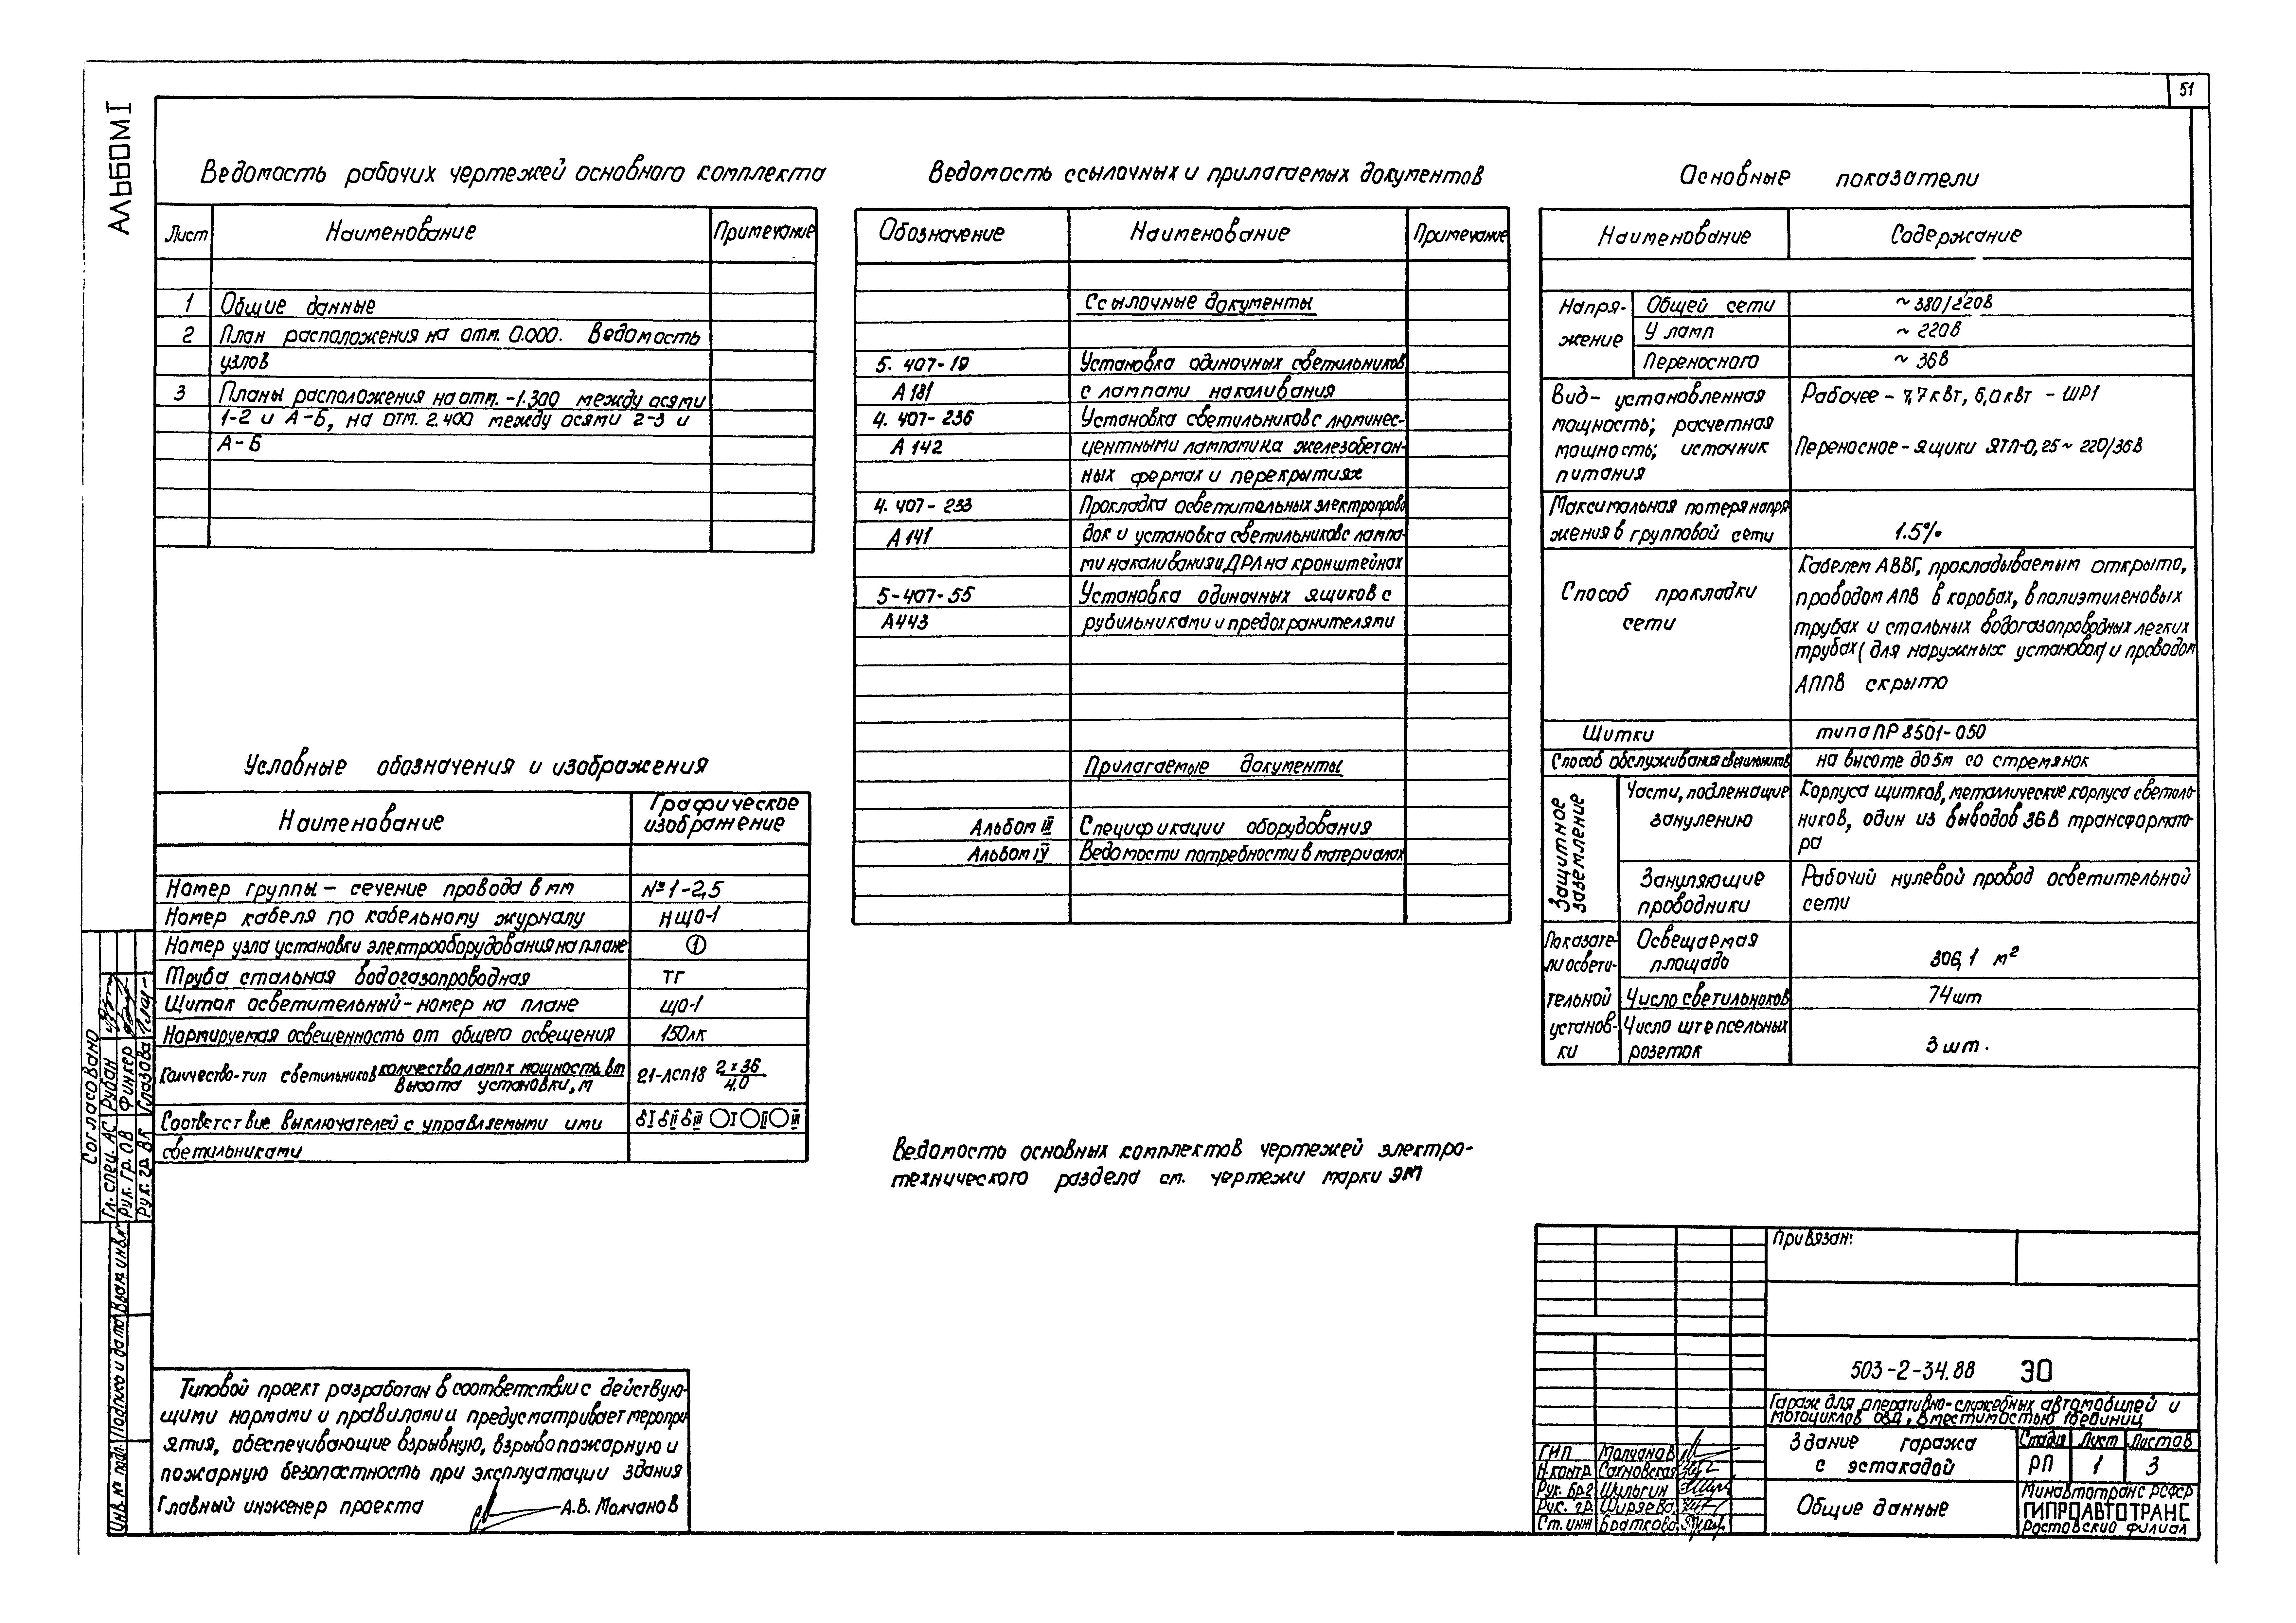 51
АЛЬБОМ I
Ведомость рабочих чертежей основного комплекта
Лист Наименование Примечание
1 Общие данные
2 План расположения на отм. 0.000. Ведомость
узлов
3 Планы расположения на отм. -1.300 между осями
1-2 и А-Б, на отм. 2.400 между осями 2-3 и
А-Б
Условные обозначения и изображения
Наименование Графическое
изображение
Номер группы - сечение провода в мм №1-2,5
Номер кабеля по кабельному журналу НЩО-1
Номер узла установки электрооборудования на плане 1
Труба стальная водогазопроводная ТГ
Щиток осветительный - номер на плане ЩО-1
Нормируемая освещенность от общего освещения 150лк
Количество-тип светильников количество ламп х мощность, вт 21-ЛСП18 2х36
высота установки, м 4.0
Соответствие выключателей с управляемыми ими I II III I II III
светильниками
Ведомость ссылочных и прилагаемых документов
Обозначение Наименование Примечание
Ссылочные документы
5. 407-19 Установка одиночных светильников
А 181 с лампами накаливания
4. 407-236 Установка светильников с люминес-
А 142 центными лампами на железобетон-
ных фермах и перекрытиях
4. 407-233 Прокладка осветительных электропрово
А 141 док и установка светильников с лампа-
ми накаливания и ДРЛ на кронштейнах
5-407-55 Установка одиночных ящиков с
А443 рубильниками и предохранителями
Прилагаемые документы
Альбом III Спецификации оборудования
Альбом IV Ведомости потребности в материалах
Ведомость основных комплектов чертежей электро-
технического раздела см. чертежи марки ЭМ
Основные показатели
Наименование Содержание
Напря-
жение
Общей сети ~ 380/220В
У ламп ~ 220В
Переносного ~ 36В
Вид - установленная Рабочее - 7,7кВт, 6,0кВт - ШР1
мощность; расчетная
мощность; источник Переносное - ящики ЯТП-0,25 ~ 220/36В
питания
Максимальная потеря напря
жения в групповой сети 1.5%
Способ прокладки
сети
Кабелем АВВГ, прокладываемым открыто,
проводом АПВ в коробах, в полиэтиленовых
трубах и стальных водогазопроводных легких
трубах (для наружных установок) и проводом
АППВ скрыто
Щитки типа ПР 8501-050
Способ обслуживания светильников на высоте до 5м со стремянок
Защитное
заземление
Части, подлежащие
занулению
Корпуса щитков, металлические корпуса светиль-
ников, один из выводов 36В трансформато-
ра
Зануляющие
проводники
Рабочий нулевой провод осветительной
сети
Показате-
ли освети-
тельной
установ-
ки
Освещаемая
площадь
306,1 м²
Число светильников 74шт
Число штепсельных
розеток
3 шт.
Согласовано
Гл. спец. АС Рубан
Рук. гр. ОВ Финкер
Рук. гр. ВК Глазова
Инв. № подл. Подпись и дата Взам. инв. №
Типовой проект разработан в соответствии с действую-
щими нормами и правилами и предусматривает меропри-
ятия, обеспечивающие взрывную, взрывопожарную и
пожарную безопасность при эксплуатации здания
Главный инженер проекта А.В. Молчанов
Привязан:
503-2-34.88 ЭО
Гараж для оперативно-служебных автомобилей и
мотоциклов ОВД, вместимостью единиц
ГИП Молчанов
Н.контр. Сахновская
Рук. бр. Шульгин
Рук. гр. Ширяева
Ст. инж Браткова
Здание гаража
с эстакадой
Стадия Лист Листов
РП 1 3
Общие данные
Минавтотранс РСФСР
ГИПРОАВТОТРАНС
Ростовский филиал